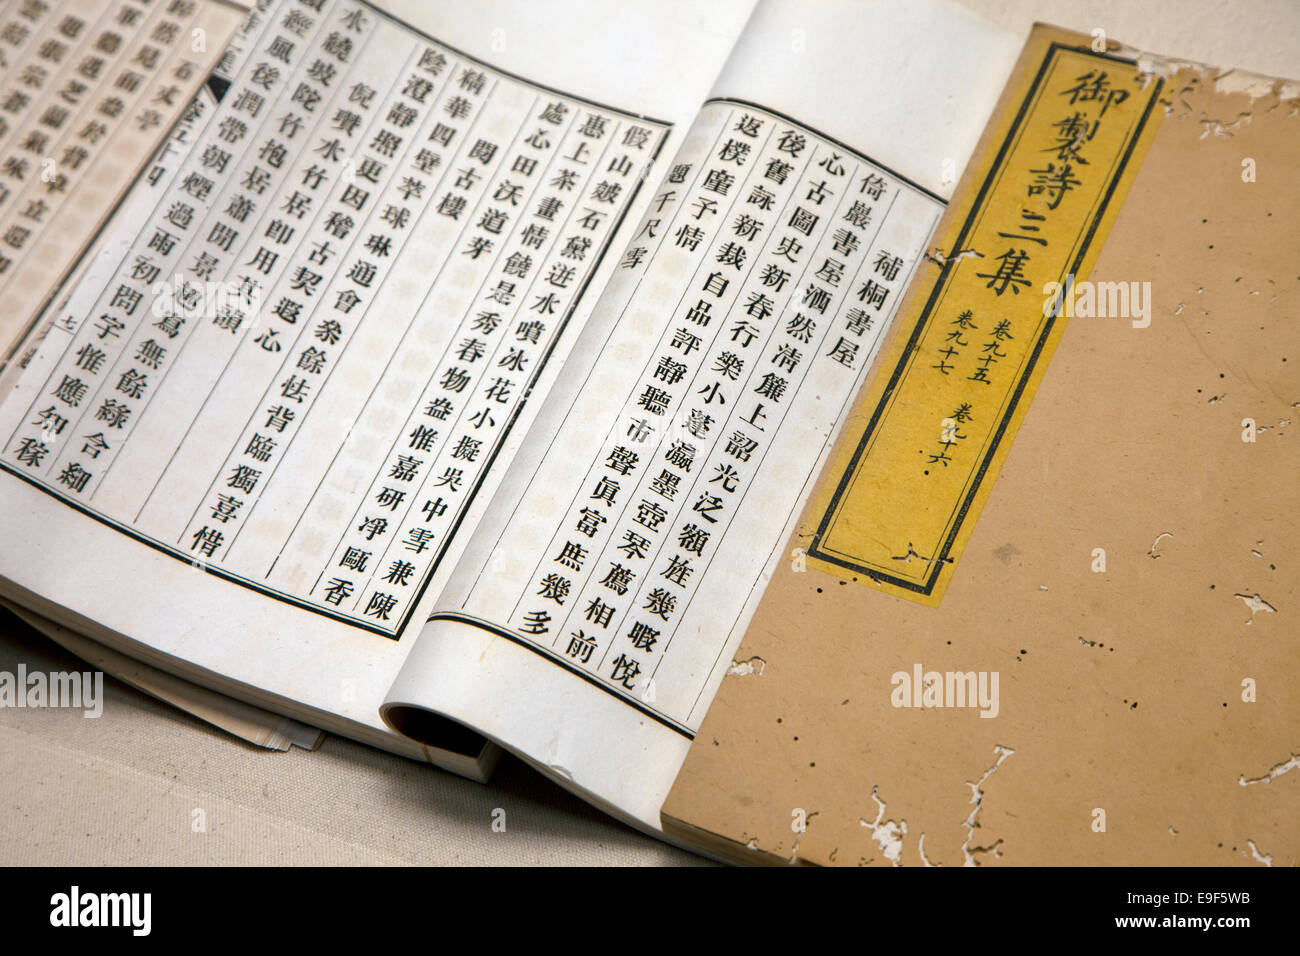 御製詩三集
卷九十五
卷九十六
卷九十七
補桐書屋
倚巖書屋洒然清簾上韶光泛額旌幾暇悅
心古圖史新春行樂小蓬瀛墨壺琴薦相前
後舊詠新裁自品評靜聽市聲眞富庶幾多
返樸廑予情
題千尺雪
假山皴石黛迸水噴冰花小擬吳中雪兼陳
惠上茶畫情饒是秀春物盎惟嘉研凈甌香
處心田沃道芽
閱古樓
精華四壁萃球琳通會衆餘怯背臨獨喜惜
陰澄靜照更因稽古契遐心
倪瓚水竹居卽用其韻
水繞坡陀竹抱居蕭閒景趣爲無餘綠含細
經風後潤帶朝煙過雨初問字惟應知稼
七
石丈亭
居然見面盎於背卓立還
alamy
E9F5WB
www.alamy.com